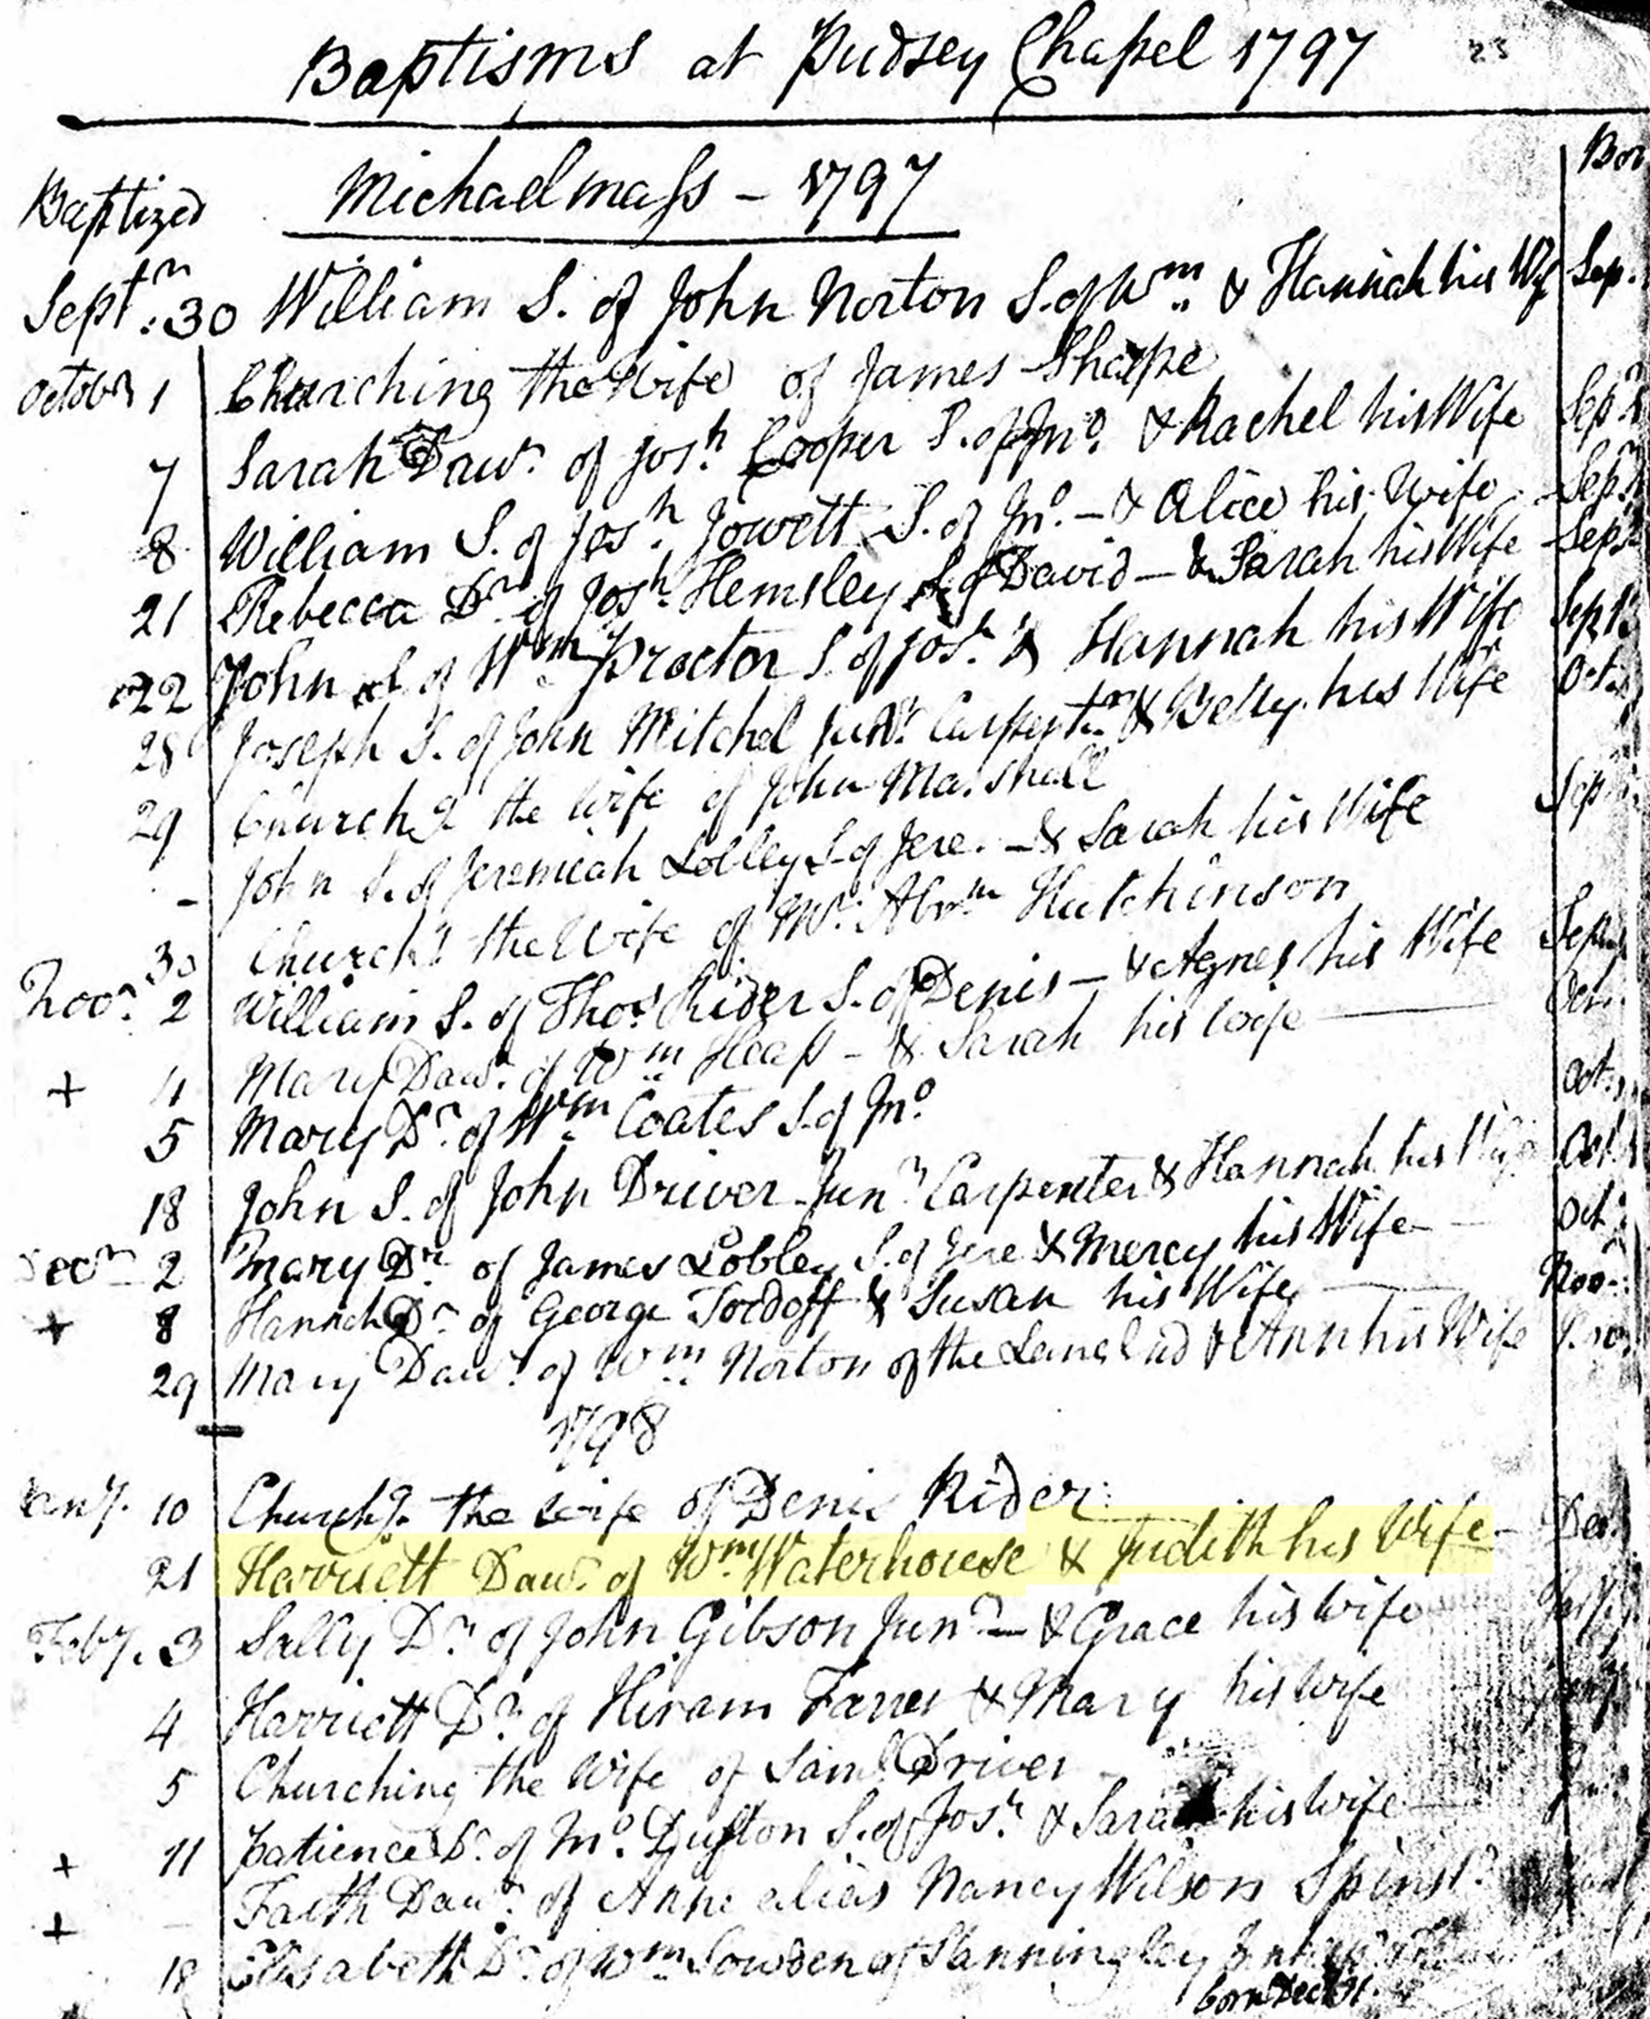 Baptisms at Pudsey Chapel 1797
Baptized Michaelmass - 1797 Bor
Septr. 30 William S. of John Norton S. of Wm. & Hannah his Wife Sep.
October 1 Churching the Wife of James Sharpe
7 Sarah Dawr. of Josh. Cooper S. of Jno. & Rachel his Wife Sep
8 William S. of Josh. Jowett S. of Jno. - & Alice his Wife Sep
21 Rebecca Dr. of Josh. Hemsley S. of David - & Sarah his Wife Sep
22 John S. of Wm. Proctor S. of Josh. & Hannah his Wife Sep
28 Joseph S. of John Mitchel Junr. Carpentr. & Betty his Wife Oct.
29 Churchg. the Wife of John Marshall
- John S. of Jeremiah Lobley S. of Jere. - & Sarah his Wife Sep
30 Churchg. the Wife of Mr. Abrm. Hutchinson
Novr. 2 William S. of Thos. Rider S. of Denis - & Agnes his Wife Sep
+ 4 Mary Dawr. of Wm. Heap - & Sarah his Wife Oct.
5 Mary Dr. of Wm. Coates S. of Jno. Oct.
18 John S. of John Driver Junr. Carpenter & Hannah his Wife Oct.
Decr. 2 Mary Dr. of James Lobley S. of Jere & Mercy his Wife - Oct
+ 8 Hannah Dr. of George Tordoff & Susan his Wife Nov.
29 Mary Dawr. of Wm. Norton of the Lane End & Ann his Wife
1798
Jany. 10 Churchg. the Wife of Denis Rider
21 Harriett Dawr. of Wm. Waterhouse & Judith his Wife - Dec.
Feby. 3 Sally Dr. of John Gibson Junr. - & Grace his Wife
4 Harriett Dr. of Hiram Farrer & Mary his Wife
5 Churching the Wife of Saml. Driver
+ 11 Patience Dr. of Jno. Dufton S. of Josh. & Sarah his Wife
+ - Faith Dawr. of Anne alias Nancy Wilson Spinstr.
18 Elisabeth Dr. of Wm. Sowden of Stanningley
born Decr. 31.